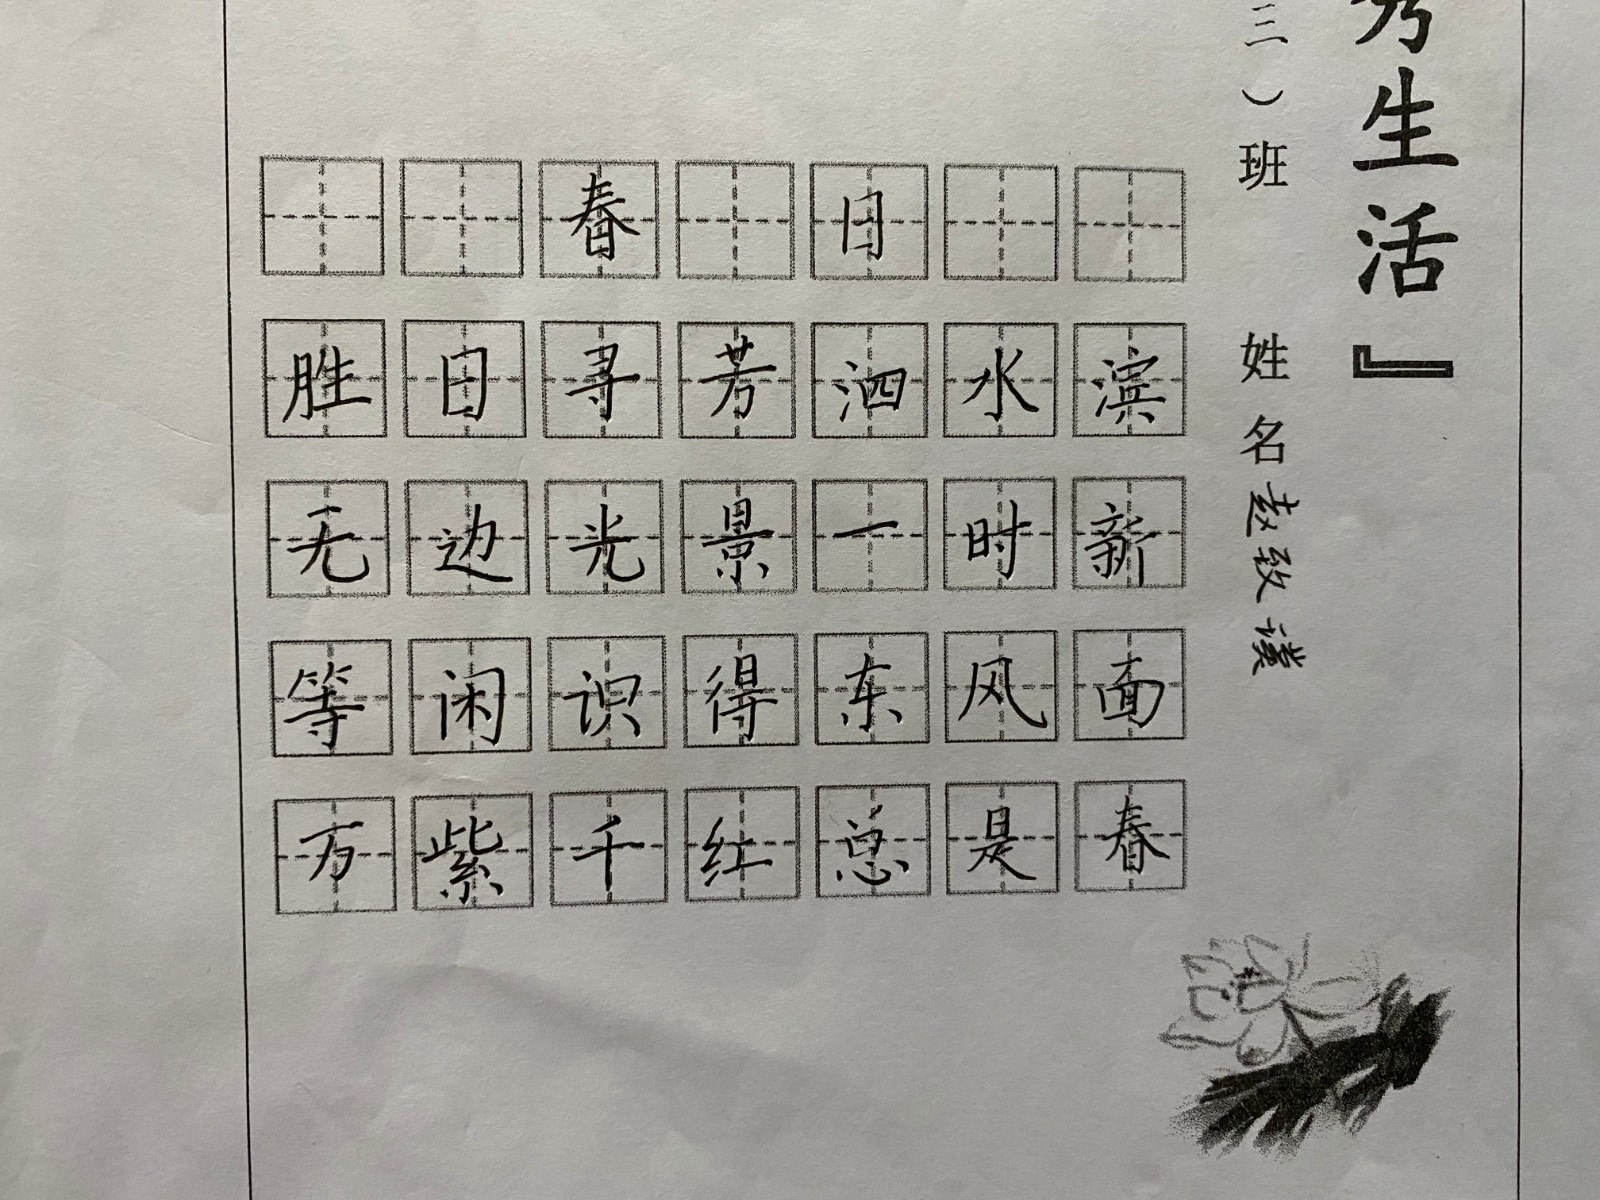 春 日
胜日寻芳泗水滨
无边光景一时新
等闲识得东风面
万紫千红总是春
三）班 姓名
生活』